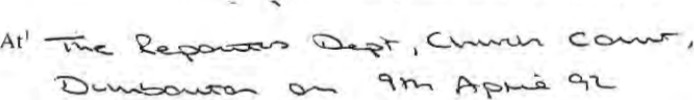 At¹ The Reporters Dept, Church Court,
Dumbarton on 9th April 92